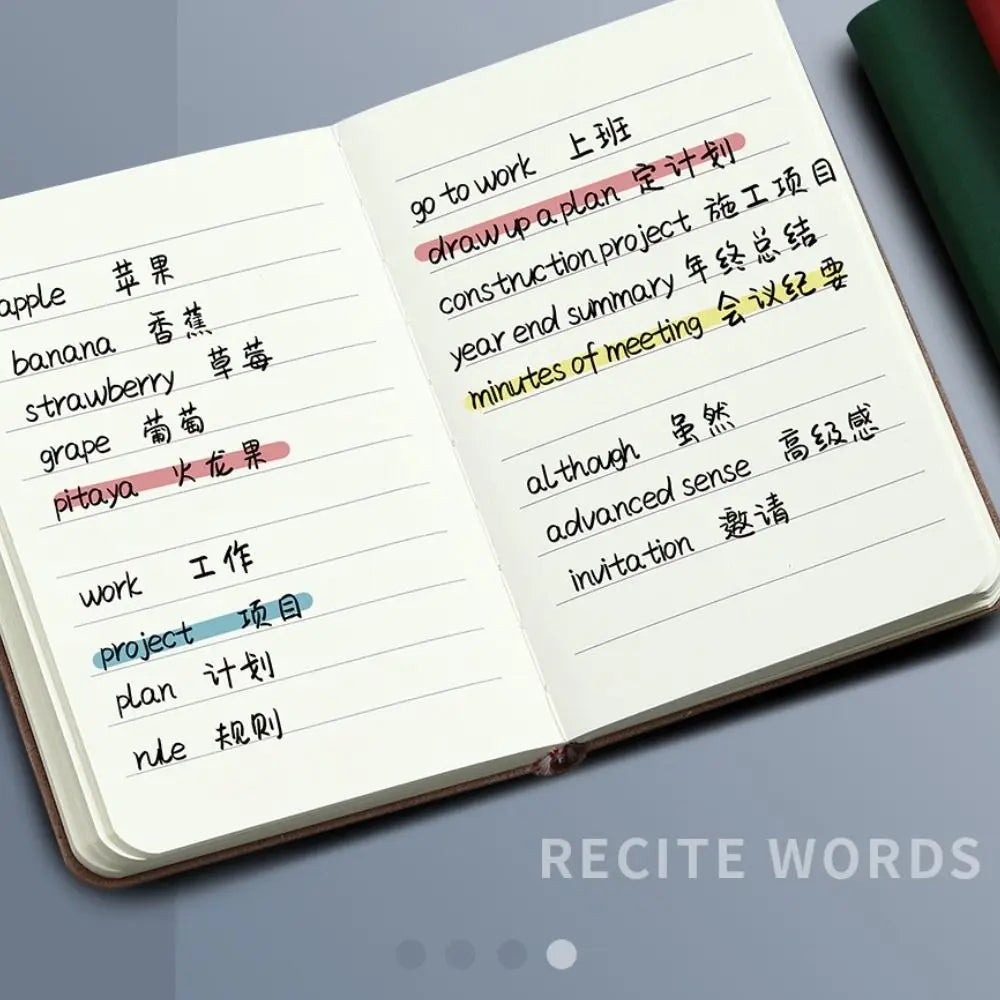 apple 苹果
banana 香蕉
strawberry 草莓
grape 葡萄
pitaya 火龙果
work 工作
project 项目
plan 计划
rule 规则
go to work 上班
draw up a plan 定计划
construction project 施工项目
year end summary 年终总结
minutes of meeting 会议纪要
although 虽然
advanced sense 高级感
invitation 邀请
RECITE WORDS